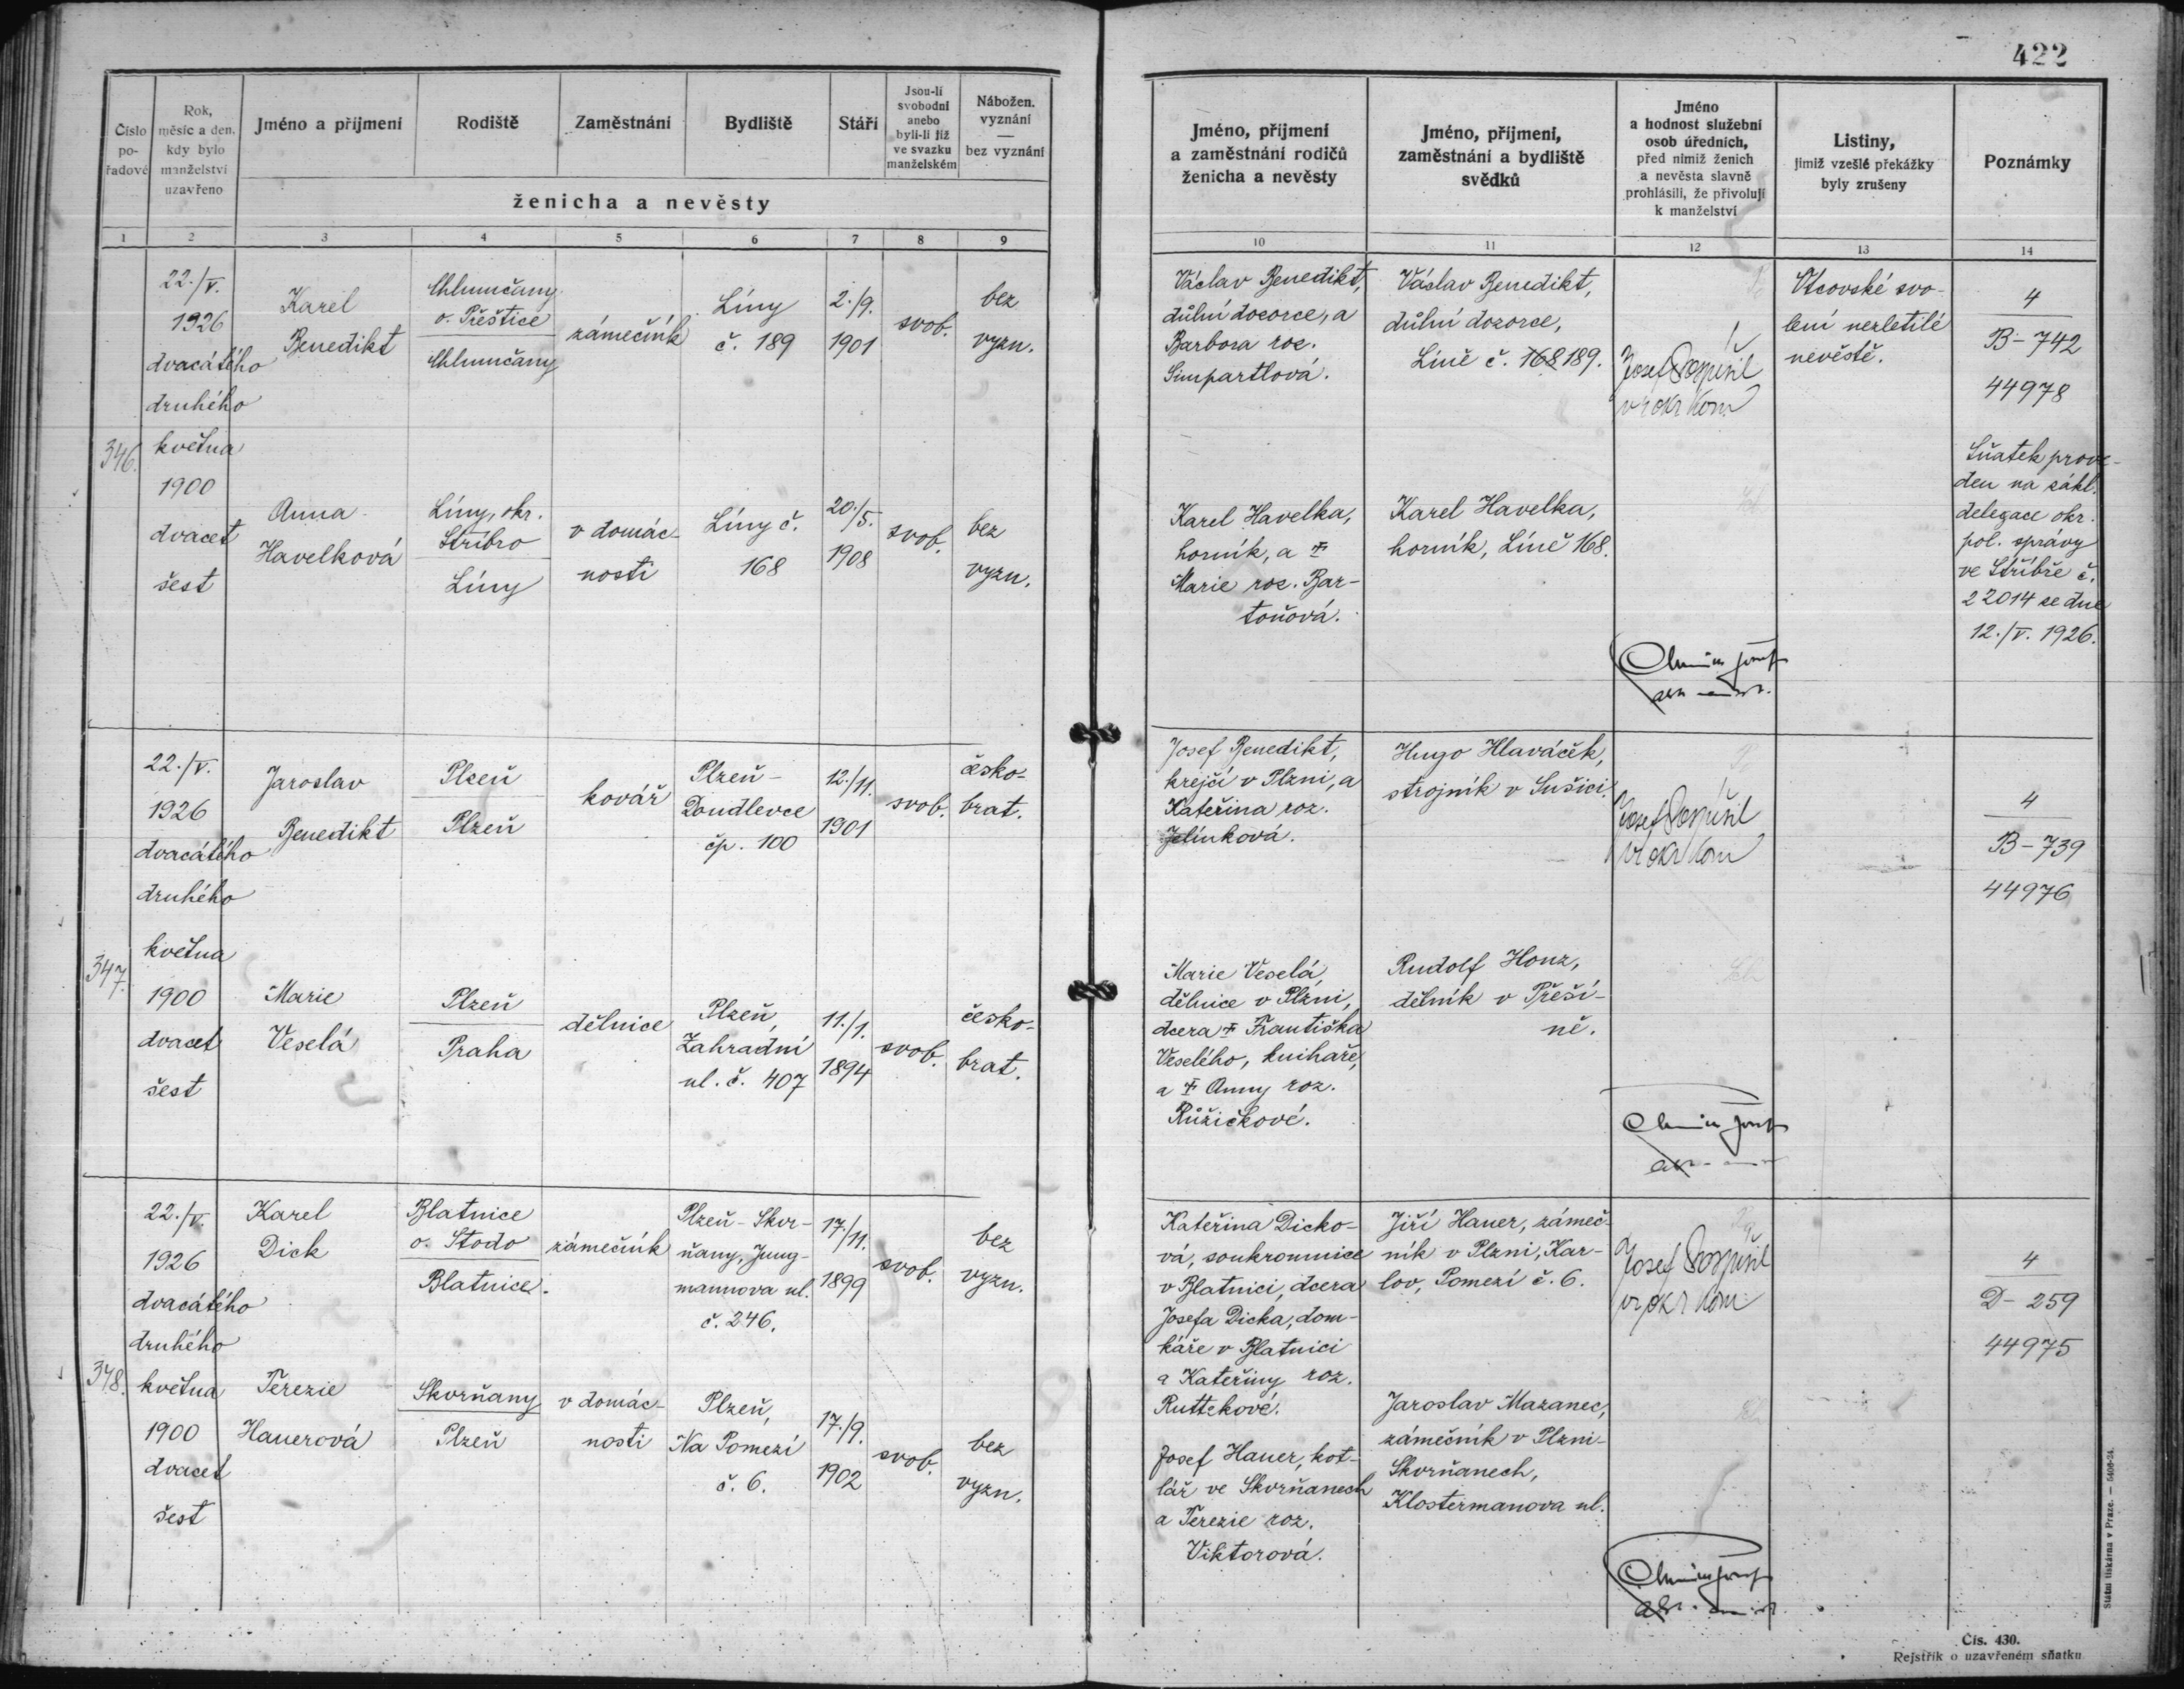 422
Číslo
po-
řadové
Rok,
měsíc a den,
kdy bylo
manželství
uzavřeno
Jméno a příjmení
Rodiště
Zaměstnání
Bydliště
Stáří
Jsou-li
svobodni
anebo
byli-li již
ve svazku
manželském
Nábožen.
vyznání
—
bez vyznání
ženicha a nevěsty
1 2 3 4 5 6 7 8 9
Jméno, příjmení
a zaměstnání rodičů
ženicha a nevěsty
Jméno, příjmení,
zaměstnání a bydliště
svědků
Jméno
a hodnost služební
osob úředních,
před nimiž ženich
a nevěsta slavně
prohlásili, že přivolují
k manželství
Listiny,
jimiž vzešlé překážky
byly zrušeny
Poznámky
10 11 12 13 14
346.
22./V.
1926
dvacátého
druhého
května
1900
dvacet
šest
Karel
Benedikt
Chlumčany
o. Přeštice
Chlumčany
zámečník
Líny
č. 189
2./9.
1901
svob.
bez
vyzn.
Anna
Havelková
Líny, okr.
Stříbro
Líny
v domác-
nosti
Líny č.
168
20./5.
1908
svob.
bez
vyzn.
Václav Benedikt,
důlní dozorce, a
Barbora roz.
Simpartlová.
Václav Benedikt,
důlní dozorce,
Líně č. 168 189.
Josef Pospíšil
vr okr kom
Otcovské svo-
lení nezletilé
nevěstě.
4
B-742
44978
Karel Havelka,
horník, a ✝
Marie roz. Bar-
toňová.
Karel Havelka,
horník, Líně 168.
Sňatek prove-
den na zákl.
delegace okr.
pol. správy
ve Stříbře č.
22014 ze dne
12./V. 1926.
347.
22./V.
1926
dvacátého
druhého
května
1900
dvacet
šest
Jaroslav
Benedikt
Plzeň
Plzeň
kovář
Plzeň-
Doudlevce
čp. 100
12./11.
1901
svob.
česko-
brat.
Marie
Veselá
Plzeň
Praha
dělnice
Plzeň,
Zahradní
ul. č. 407
11./1.
1894
svob.
česko-
brat.
Josef Benedikt,
krejčí v Plzni, a
Kateřina roz.
Jelínková.
Hugo Hlaváček,
strojník v Sušici.
Josef Pospíšil
vr okr kom
4
B-739
44976
Marie Veselá,
dělnice v Plzni,
dcera ✝ Františka
Veselého, knihaře,
a ✝ Anny roz.
Růžičkové.
Rudolf Honz,
dělník v Přeší-
ně.
348.
22./V.
1926
dvacátého
druhého
května
1900
dvacet
šest
Karel
Dick
Blatnice
o. Stodo
Blatnice.
zámečník
Plzeň-Skvr-
ňany, Jung-
mannova ul.
č. 246.
17./11.
1899
svob.
bez
vyzn.
Terezie
Hauerová
Skvrňany
Plzeň
v domác-
nosti
Plzeň,
Na Pomezí
č. 6.
17./9.
1902
svob.
bez
vyzn.
Kateřina Dicko-
vá, soukromnice
v Blatnici, dcera
Josefa Dicka, dom-
káře v Blatnici
a Kateřiny roz.
Ruttekové.
Jiří Hauer, zámeč-
ník v Plzni, Kar-
lov, Pomezí č. 6.
Josef Pospíšil
vr okr kom
4
D-259
44975
Josef Hauer, kot-
lář ve Skvrňanech
a Terezie roz.
Viktorová.
Jaroslav Mazanec,
zámečník v Plzni-
Skvrňanech,
Klostermanova ul.
Státní tiskárna v Praze. — 5408-24.
Čís. 430.
Rejstřík o uzavřeném sňatku